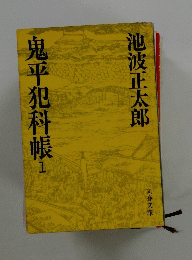 池波正太郎
鬼平犯科帳1
文春文庫